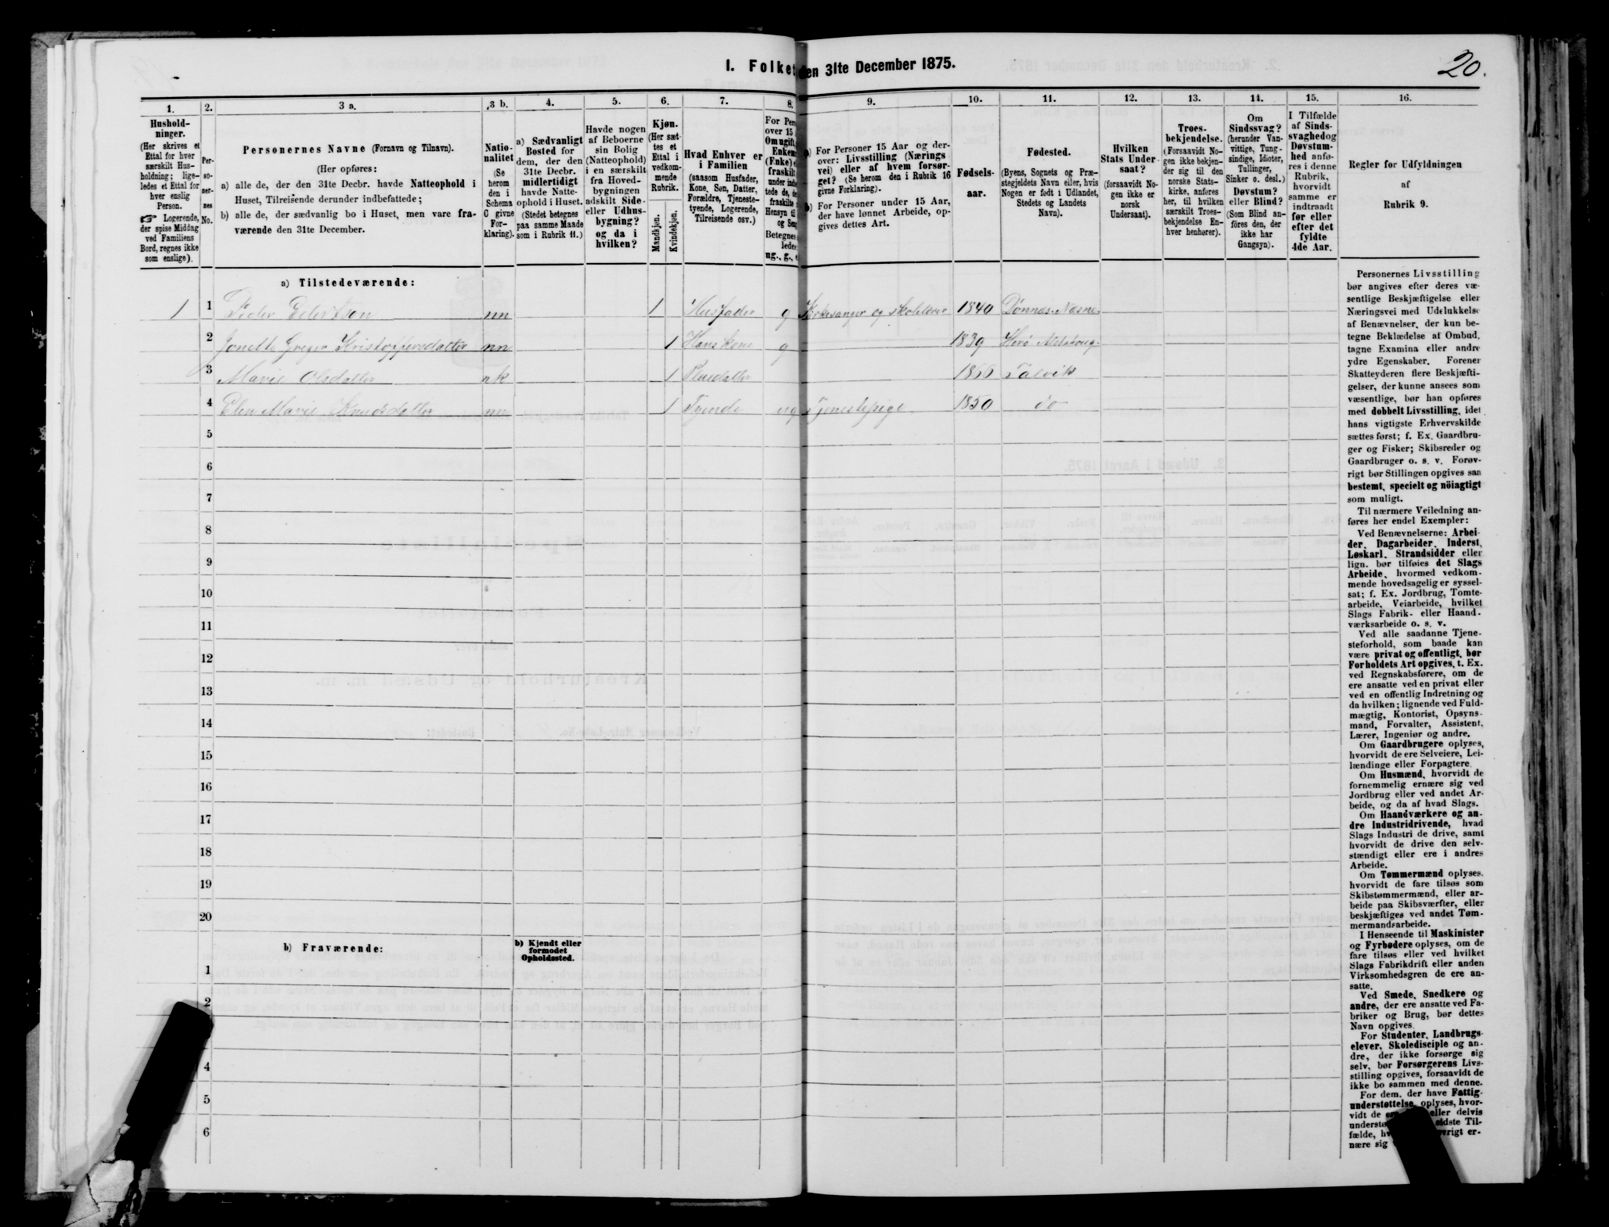 20.
I. Folket
den 31te December 1875.
1. 2. 3 a. 3 b. 4. 5. 6. 7. 8. 9. 10. 11. 12. 13. 14. 15. 16.
Hushold-
ninger.
(Her skrives et
Ettal for hver
særskilt Hus-
holdning; lige-
ledes et Ettal for
hver enslig
Person.
☞ Logerende,
der spise Middag
ved Familiens
Bord, regnes ikke
som enslige).
Per-
so-
ner-
nes
No.
Personernes Navne (Fornavn og Tilnavn).
(Her opføres:
a) alle de, der den 31te Decbr. havde Natteophold i
Huset, Tilreisende derunder indbefattede;
b) alle de, der sædvanlig bo i Huset, men vare fra-
værende den 31te December.
Natio-
nalitet
(Se
herom
den i
Schema
C givne
For-
klaring).
a) Sædvanligt
Bosted for
dem, der den
31te Decbr.
midlertidigt
havde Natte-
ophold i Huset.
(Stedet betegnes
paa samme Maade
som i Rubrik 11.)
Havde nogen
af Beboerne
sin Bolig
(Natteophold)
i en særskilt
fra Hoved-
bygningen
adskilt Side-
eller Udhus-
bygning?
og da i
hvilken?
Kjøn.
(Her sæt-
tes et
Ettal i
vedkom-
mende
Rubrik.
Mandkjøn.
Kvindekjøn.
Hvad Enhver er
i Familien
(saasom Husfader,
Kone, Søn, Datter,
Forældre, Tjeneste-
tyende, Logerende,
Tilreisende osv.)
For Per
over 15
Om ugift,
Enkem
(Enke)
fraskilt
a) For Personer 15 Aar og der-
over: Livsstilling (Nærings
vei) eller af hvem forsør-
get? (Se herom den i Rubrik 16
givne Forklaring).
b) For Personer under 15 Aar,
der have lønnet Arbeide, op-
gives dettes Art.
Fødsels-
aar.
Fødested.
(Byens, Sognets og Præ-
stegjeldets Navn eller, hvis
Nogen er født i Udlandet,
Stedets og Landets
Navn).
Hvilken
Stats Under-
saat?
(forsaavidt No-
gen ikke er
norsk
Undersaat).
Troes-
bekjendelse.
(Forsaavidt No-
gen ikke bekjen-
der sig til den
norske Stats-
kirke, anføres
her, til hvilken
særskilt Troes-
bekjendelse En-
hver henhører).
Om
Sindssvag?
(herunder Van-
vittige, Tung-
sindige, Idioter,
Tullinger,
Sinker o. desl.)
Døvstum?
eller Blind?
(Som Blind an-
føres den, der
ikke har
Gangsyn).
I Tilfælde
af Sinds-
svaghed og
Døvstum-
hed anfø-
res i denne
Rubrik,
hvorvidt
samme er
indtraadt
før eller
efter det
fyldte
4de Aar.
Regler for Udfyldningen
af
Rubrik 9.
a) Tilstedeværende:
1 1 Peder Edvartsen nn 1 Husfader g Kirkesanger og Skolelærer 1840 Dønnæs Næsne
2 Jonette Kristoffersdatter nn 1 Hans kone g 1839 Herø Alstahoug
3 Marie Olsdatter nk 1 Pleiedatter Talvik
4 Elen Marie Knudsdatter nn 1 Tyende ug Tjenestepige 1850 do
5
6
7
8
9
10
11
12
13
14
15
16
17
18
19
20
b) Fraværende:
b) Kjendt eller
formodet
Opholdssted.
1
2
4
5
6
Personernes Livsstilling
bør angives efter deres væ-
sentlige Beskjæftigelse eller
Næringsvei med Udelukkelse
af Benævnelser, der kun be-
tegne Beklædelse af Ombud,
tagne Examina eller andre
ydre Egenskaber. Forener
Skatteyderen flere Beskjæfti-
gelser, der kunne ansees som
væsentlige, bør han opføres
med dobbelt Livsstilling, idet
hans vigtigste Erhvervskilde
sættes først; f. Ex. Gaardbru-
ger og Fisker; Skibsreder og
Gaardbruger o. s. v. Forøv-
rigt bør Stillingen opgives saa
bestemt, specielt og nöiagtigt
som muligt.
Til nærmere Veiledning an-
føres her endel Exempler:
Ved Benævnelserne: Arbei-
der, Dagarbeider, Inderst,
Løskarl, Strandsidder eller
lign. bør tilføies det Slags
Arbeide, hvormed vedkom-
mende hovedsagelig er syssel-
sat; f. Ex. Jordbrug, Tomte-
arbeide, Veiarbeide, hvilket
Slags Fabrik- eller Haand-
værksarbeide o. s. v.
Ved alle saadanne Tjene-
steforhold, som baade kan
være privat og offentligt, bør
Forholdets Art opgives, t. Ex.
ved Regnskabsførere, om de
ere ansatte ved en privat eller
ved en offentlig Indretning og
da hvilken; lignende ved Fuld-
mægtig, Kontorist, Opsyns-
mand, Forvalter, Assistent,
Lærer, Ingeniør og andre.
Om Gaardbrugere oplyses,
hvorvidt de ere Selveiere, Lei-
lændinge eller Forpagtere.
Om Husmænd, hvorvidt de
fornemmelig ernære sig ved
Jordbrug eller ved andet Ar-
beide, og da af hvad Slags.
Om Haandværkere og an-
dre Industridrivende, hvad
Slags Industri de drive, samt
hvorvidt de drive den selv-
stændigt eller ere i andres
Arbeide.
Om Tømmermænd oplyses,
hvorvidt de fare tilsøs som
Skibstømmermænd, eller ar-
beide paa Skibsværfter, eller
beskjæftiges ved andet Tøm-
mermandsarbeide.
I Henseende til Maskinister
og Fyrbødere oplyses, om de
fare tilsøs eller ved hvilket
Slags Fabrikdrift eller anden
Virksomhedsgren de ere an-
satte.
Ved Smede, Snedkere og
andre, der ere ansatte ved Fa-
briker og Brug, bør dettes
Navn opgives.
For Studenter, Landbrugs-
elever, Skoledisciple og an-
dre, der ikke forsørge sig
selv, bør Forsørgerens Livs-
stilling opgives, forsaavidt de
ikke bo sammen med denne.
For dem, der have Fattig-
understøttelse, oplyses, hvor-
vidt de eller delvis
underst sidste Til-
fælde, hv rigt er-
nære sig